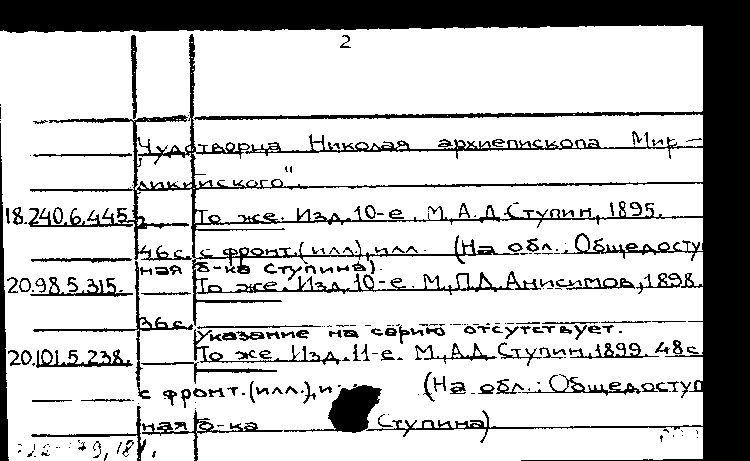 2
Чудотворца Николая архиепископа Мир-
ликийского".
18.240.6.445. То же. Изд. 10-е. М., А.Д. Ступин, 1895.
46 с. с фронт. (илл), илл. (На обл.: Общедоступ
ная б-ка Ступина).
20.98.5.315. То же. Изд. 10-е. М., П.Д. Анисимов, 1898.
36 с. Указание на серию отсутствует.
20.101.5.238. То же. Изд. 11-е. М., А.Д. Ступин, 1899. 48 с.
с фронт. (илл.), (На обл.: Общедоступ
ная б-ка Ступина).